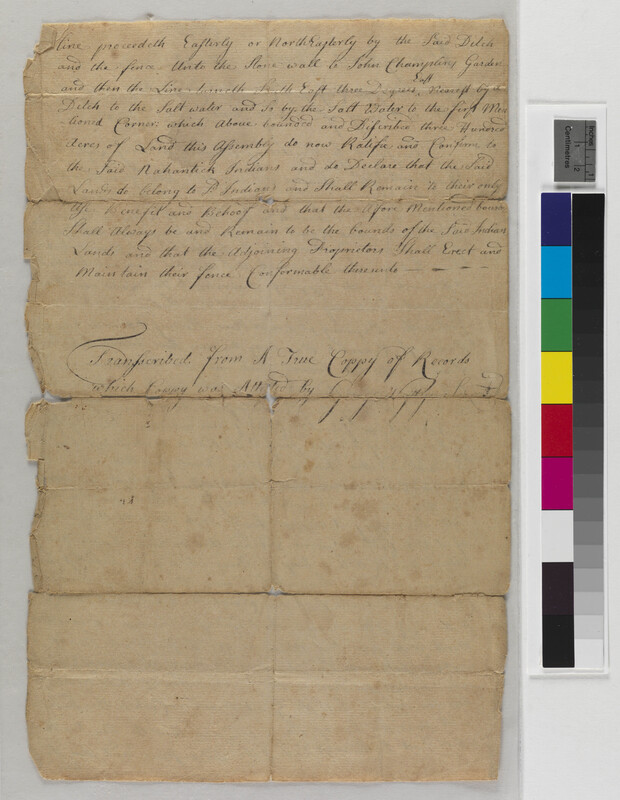 line proceedeth Easterly or NorthEasterly by the Said Ditch
and the fence Unto the Stone wall to John Champlins Garden
and then the Line runneth South East three Degrees East Nearest by a
Ditch to the Salt water and So by the Salt Water to the first Men
tioned Corner; which Above bounded and Discribed three Hundred
Acres of Land this Assembly do now Ratifie and Confirme to
the Said Nahantick Indians and do Declare that the Said
Lands do belong to Sd Indians and Shall Remain to their only
Use Benefit and Behoof and that the afore Mentioned bounds
Shall Always be and Remain to be the bounds of the Said Indians
Lands and that the Adjoining Proprietors Shall Erect and
Maintain their fence Conformable thereunto — — — —
Transcribed from A True Coppy of Records
which Coppy was Attested by
Centimetres
Inches